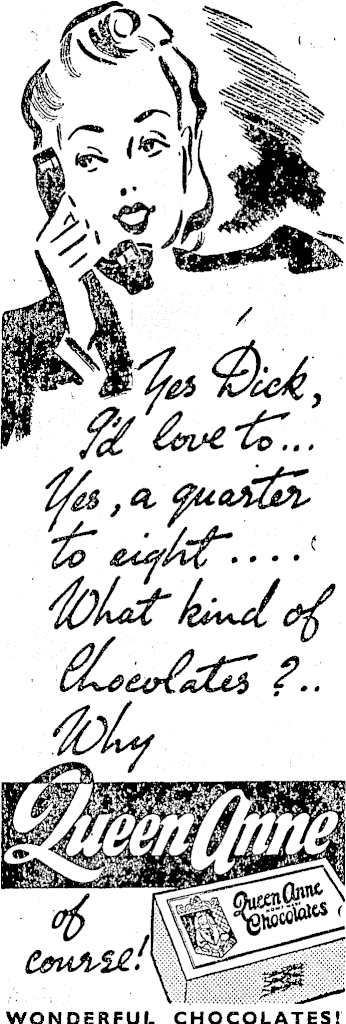 Yes Dick,
I'd love to...
Yes, a quarter
to eight ....
What kind of
Chocolates ?..
Why
Queen Anne
of
course!
Queen Anne
Chocolates
WONDERFUL CHOCOLATES!